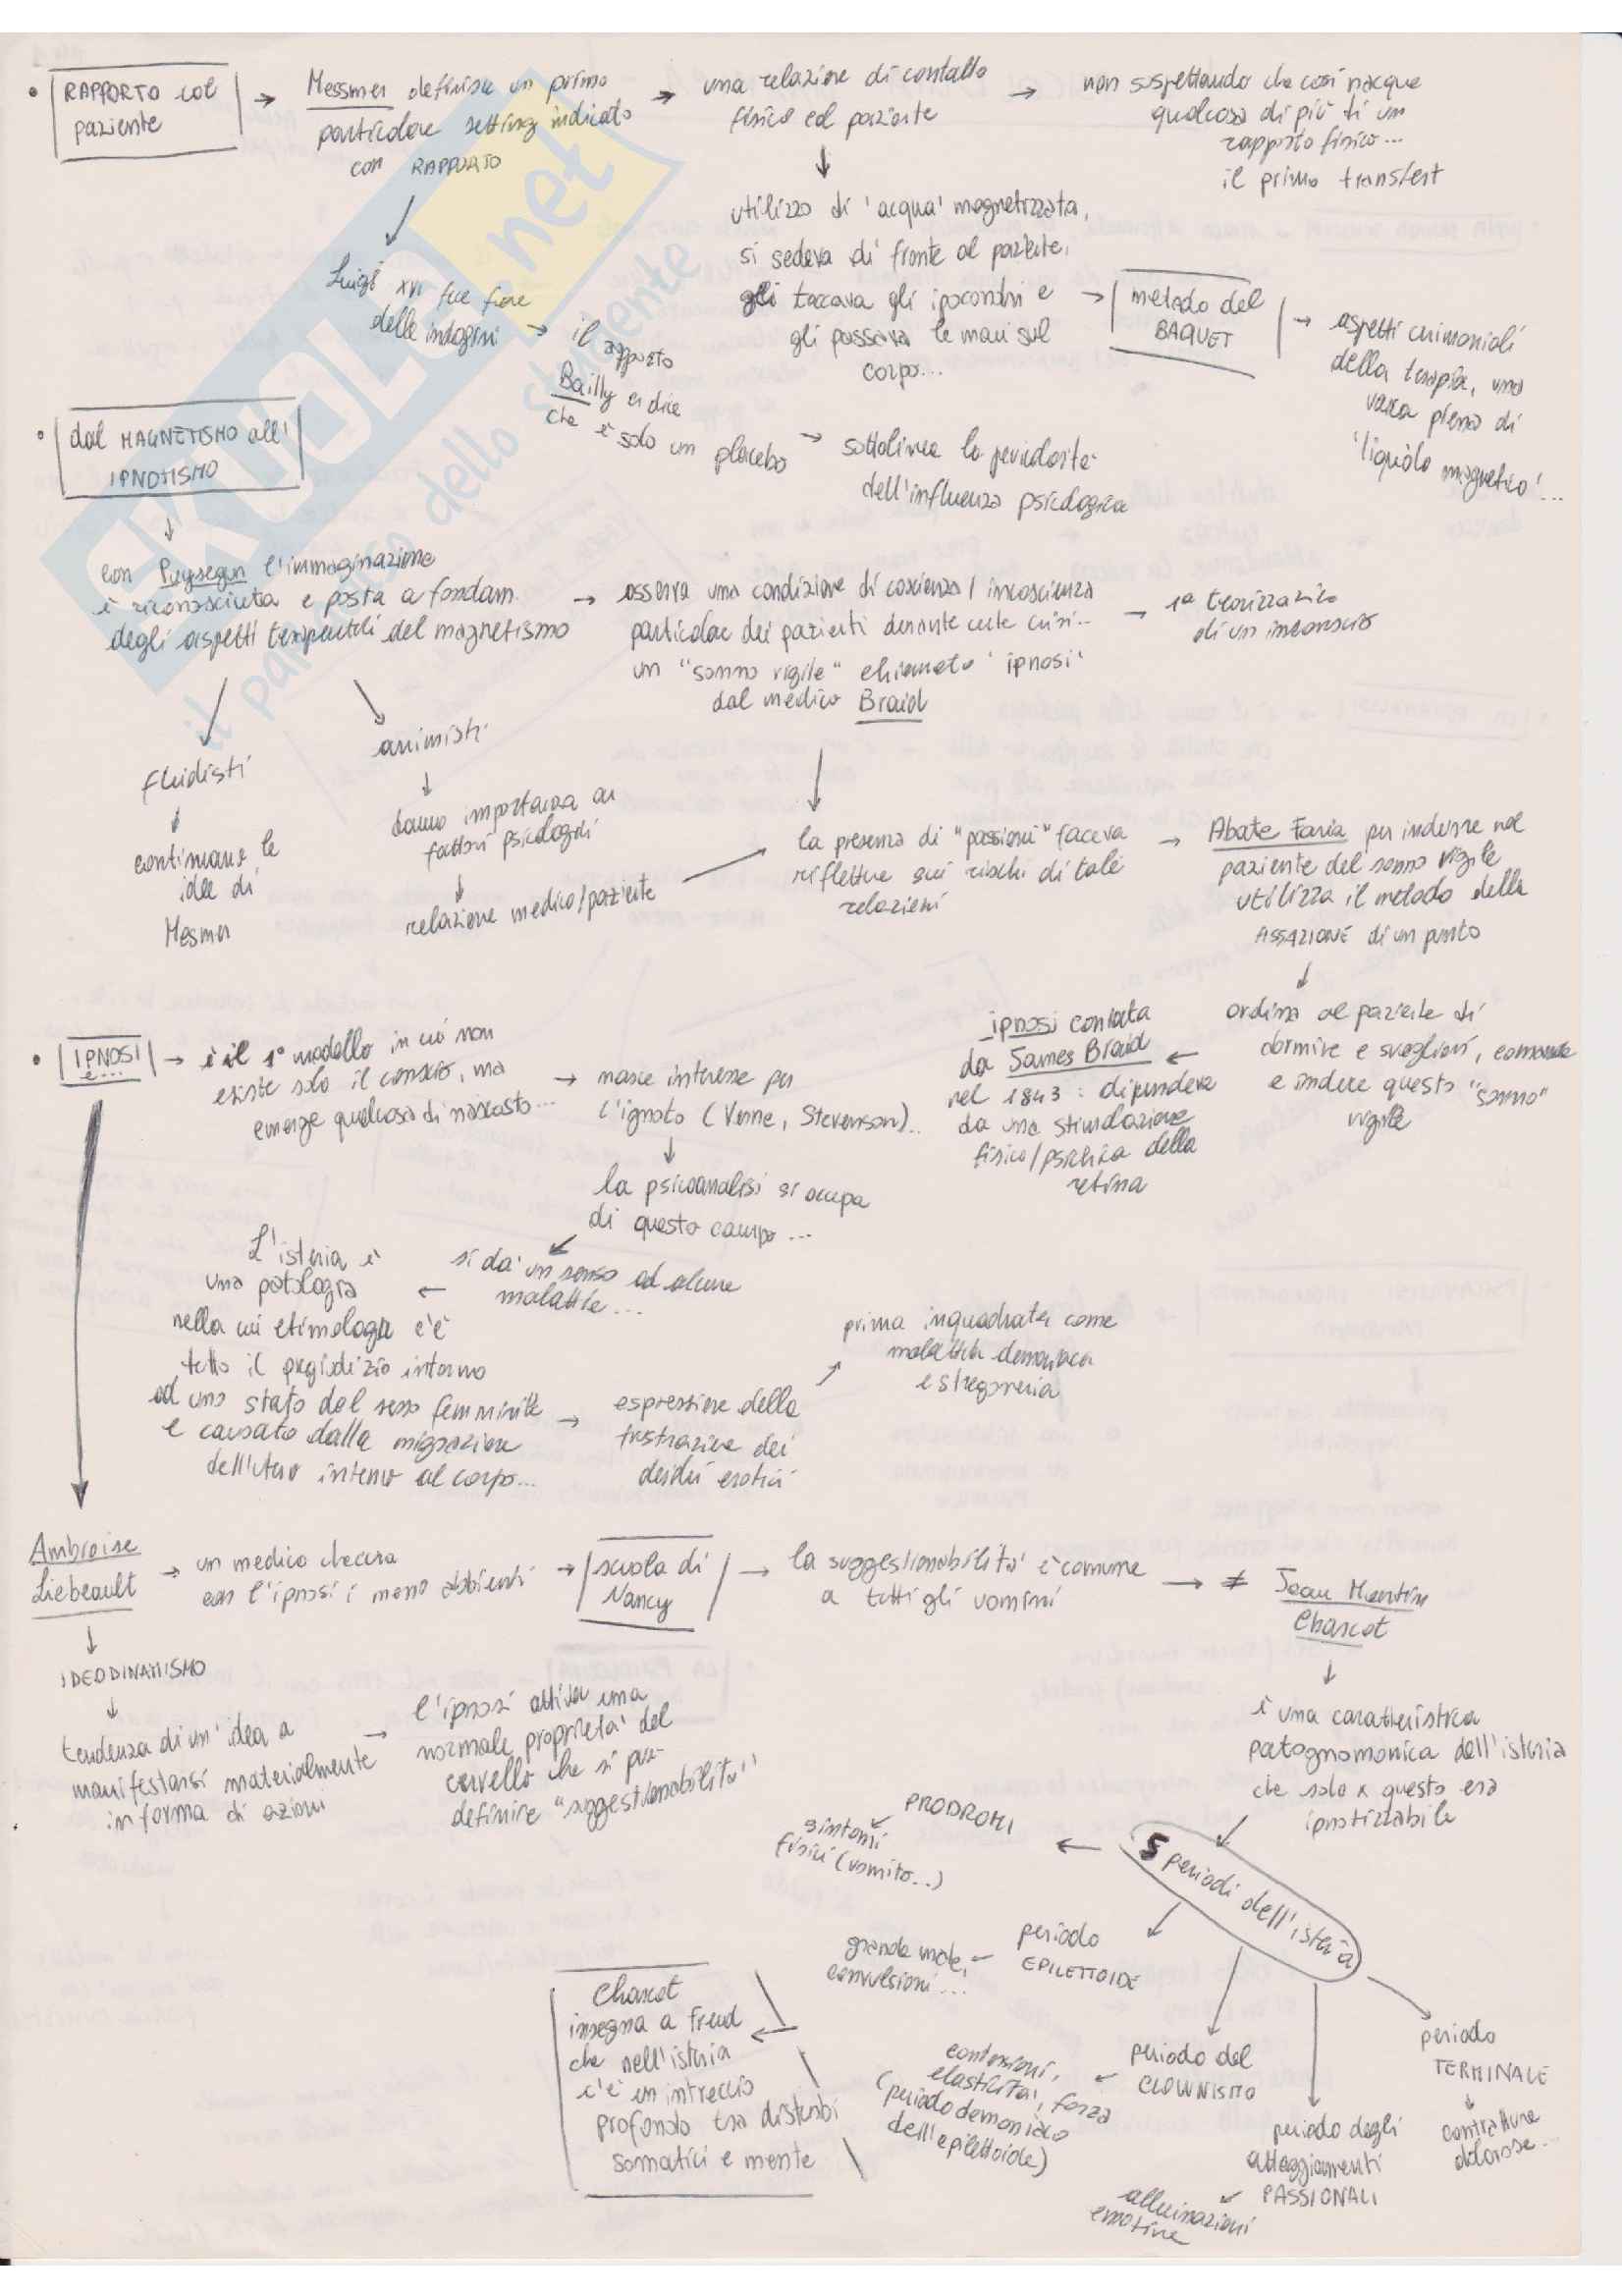 • RAPPORTO col
paziente
→ Messmer definisce un primo
particolare setting indicato
con RAPPORTO
→ una relazione di contatto
fisico col paziente
→ non sospettando che così nacque
qualcosa di più di un
rapporto fisico...
il primo transfert
utilizzo di 'acqua' magnetizzata,
si sedeva di fronte al paziente,
gli toccava gli ipocondri e
gli passava le mani sul
corpo...
→ metodo del
BAQUET
→ aspetti cerimoniali
della terapia, una
vasca piena di
'liquido magnetico'...
Luigi XVI fece fare
delle indagini
→ il rapporto
Bailly ci dice
che è solo un placebo
→ sottolinea la pericolosità
dell'influenza psicologica
• dal MAGNETISMO all'
IPNOTISMO
con Puysegur l'immaginazione
è riconosciuta e posta a fondam.
degli aspetti terapeutici del magnetismo
→ osserva una condizione di coscienza / incoscienza
particolare dei pazienti durante certe crisi...
un "sonno vigile" chiamato 'ipnosi'
dal medico Braid
→ 1ª teorizzazione
di un inconscio
fluidisti
continuano le
idee di
Mesmer
animisti
danno importanza ai
fattori psicologici
relazione medico/paziente
la presenza di "passioni" faceva
riflettere sui rischi di tale
relazioni
→ Abate Faria per indurre nel
paziente del sonno vigile
utilizza il metodo della
FISSAZIONE di un punto
ordina al paziente di
dormire e svegliarsi,
e indurre questo "sonno"
vigile
ipnosi coniata
da James Braid ←
nel 1843 : dipendeva
da una stimolazione
fisico/psichica della
retina
• IPNOSI
è....
→ è il 1° modello in cui non
esiste solo il conscio, ma
emerge qualcosa di nascosto...
→ nasce interesse per
l'ignoto (Verne, Stevenson)..
la psicoanalisi si occupa
di questo campo...
si da' un senso ad alcune
malattie...
← L'isteria è
una patologia
nella cui etimologia c'è
tutto il pregiudizio intorno
ad uno stato del sesso femminile
e causato dalla migrazione
dell'utero interno al corpo...
→ espressione della
frustrazione dei
desideri erotici
prima inquadrata come
malattia demoniaca
e stregoneria
Ambroise
Liebeault
→ un medico che cura
con l'ipnosi i meno abbienti
→ scuola di
Nancy
→ la suggestionabilità è comune
a tutti gli uomini
→ ≠ Jean Martin
Charcot
IDEODINAMISMO
tendenza di un'idea a
manifestarsi materialmente
in forma di azioni
→ l'ipnosi attiva una
normale proprietà del
cervello che si può
definire "suggestionabilità"
è una caratteristica
patognomonica dell'isteria
che solo x questo era
ipnotizzabile
5 periodi dell'isteria
← PRODROMI
sintomi
fisici (vomito...)
periodo
EPILETTOIDE
convulsioni...
periodo del
CLOWNISMO
contorsioni,
elasticità, forza
(periodo demoniaco
dell'epilettoide)
periodo degli
atteggiamenti
PASSIONALI
allucinazioni
emotive
periodo
TERMINALE
contratture
dolorose...
Charcot
insegna a Freud
che nell'isteria
c'è un intreccio
profondo tra disturbi
somatici e mente
SKUOLA.net
il paradiso dello studente